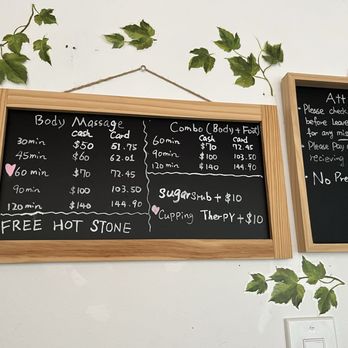 Body Massage
cash Card
30min $50 51.75
45min $60 62.01
60 min $70 72.45
90min $100 103.50
120min $140 144.90
FREE HOT STONE
Combo (Body + Foot)
cash Card
60min $70 72.45
90min $100 103.50
120 min $140 144.90
sugarsrub + $10
Cupping TherPY + $10
Att
Please check
before leave
for any mis
Please Pay
recieving
No Pre